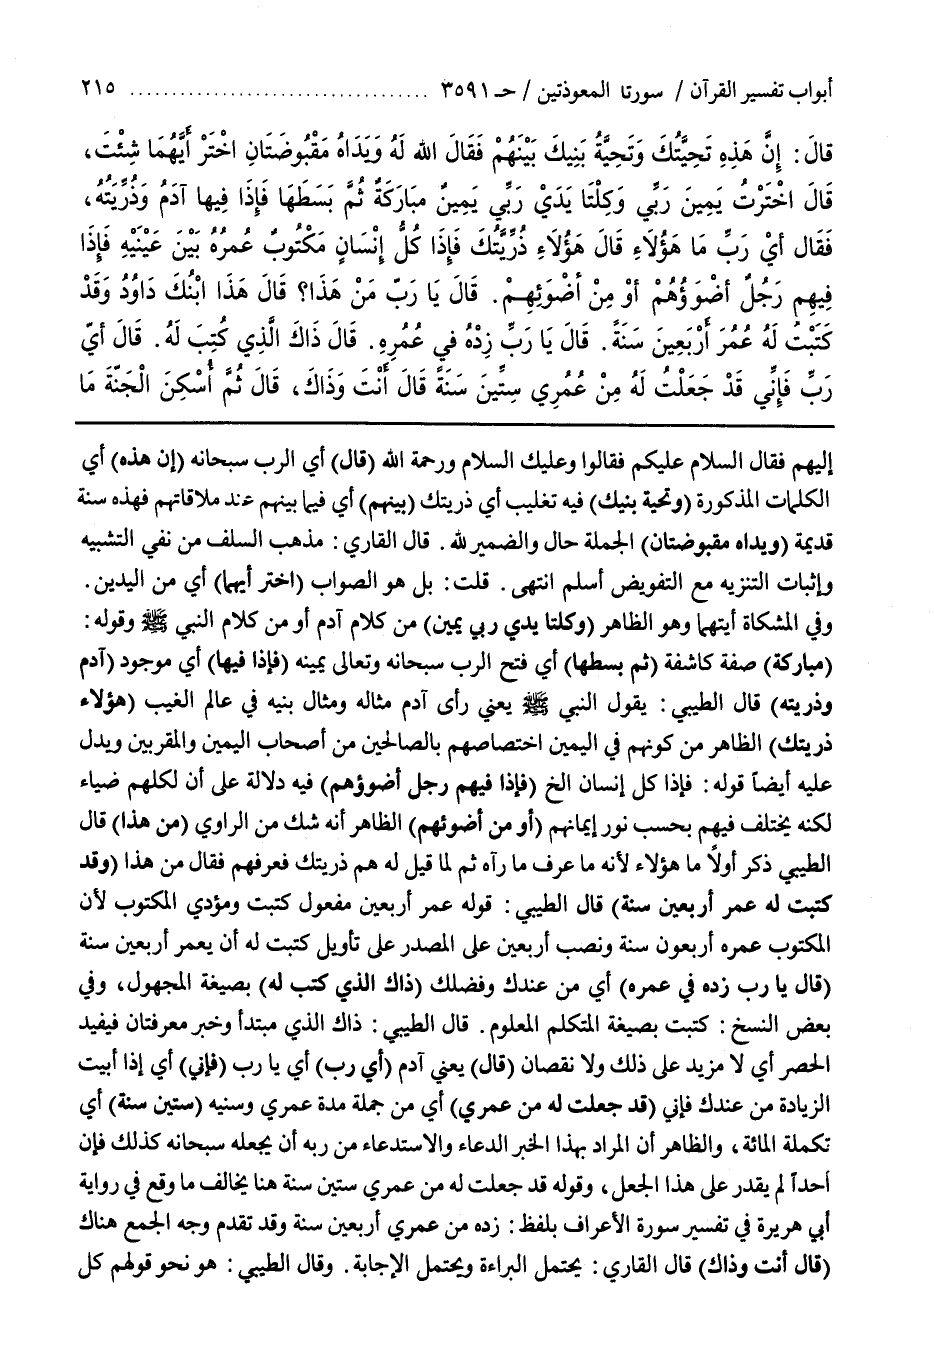 أبواب تفسير القرآن / سورتا المعوذتين / حـ ٣٥٩١ .................................... ٢١٥
قالَ: إِنَّ هَذِهِ تَحِيَّتُكَ وَتَحِيَّةُ بَنِيكَ بَيْنَهُمْ فَقَالَ الله لَهُ وَيَدَاهُ مَقْبُوضَتَانِ اخْتَرْ أَيَّهُمَا شِئْتَ،
قَالَ اخْتَرْتُ يَمِينَ رَبِّي وَكِلْتَا يَدَيْ رَبِّي يَمِينٌ مبارَكَةٌ ثُمَّ بَسَطَهَا فَإِذَا فِيها آدَمُ وَذُرِّيَّتُهُ،
فَقَال أَيْ رَبِّ مَا هَؤُلَاءِ قَالَ هَؤُلَاءِ ذُرِّيَّتُكَ فَإِذَا كُلُّ إِنْسَانٍ مَكْتُوبٌ عمرُهُ بَيْنَ عَيْنَيْهِ فَإِذَا
فِيهِم رَجُلٌ أَضْوَؤُهُمْ أَوْ مِنْ أَضْوَئِهِمْ. قَالَ يَا رَبّ مَنْ هَذَا؟ قَالَ هَذَا ابْنُكَ دَاوُدُ وَقَدْ
كَتَبْتُ لَهُ عُمُرَ أَرْبَعِينَ سَنَةً. قَالَ يَا رَبِّ زِدْهُ في عُمُرِهِ. قَالَ ذَاكَ الَّذِي كُتِبَ لَهُ. قَالَ أَيْ
رَبِّ فَإِنِّي قَدْ جَعَلْتُ لَهُ مِنْ عُمُرِي سِتِّينَ سَنَةً قَالَ أَنْتَ وَذَاكَ، قَالَ ثُمَّ أُسْكِنَ الْجَنَّةَ مَا
إليهم فقال السلام عليكم فقالوا وعليك السلام ورحمة الله (قال) أي الرب سبحانه (إن هذه) أي
الكلمات المذكورة (وتحية بنيك) فيه تغليب أي ذريتك (بينهم) أي فيما بينهم عند ملاقاتهم فهذه سنة
قديمة (ويداه مقبوضتان) الجملة حال والضمير لله. قال القاري: مذهب السلف من نفي التشبيه
وإثبات التنزيه مع التفويض أسلم انتهى. قلت: بل هو الصواب (اختر أيهما) أي من اليدين.
وفي المشكاة أيتهما وهو الظاهر (وكلتا يدي ربي يمين) من كلام آدم أو من كلام النبي ﷺ وقوله:
(مباركة) صفة كاشفة (ثم بسطها) أي فتح الرب سبحانه وتعالى يمينه (فإذا فيها) أي موجود (آدم
وذريته) قال الطيبي: يقول النبي ﷺ يعني رأى آدم مثاله ومثال بنيه في عالم الغيب (هؤلاء
ذريتك) الظاهر من كونهم في اليمين اختصاصهم بالصالحين من أصحاب اليمين والمقربين ويدل
عليه أيضاً قوله: فإذا كل إنسان الخ (فإذا فيهم رجل أضوؤهم) فيه دلالة على أن لكلهم ضياء
لكنه يختلف فيهم بحسب نور إيمانهم (أو من أضوئهم) الظاهر أنه شك من الراوي (من هذا) قال
الطيبي ذكر أولاً ما هؤلاء لأنه ما عرف ما رآه ثم لما قيل له هم ذريتك فعرفهم فقال من هذا (وقد
كتبت له عمر أربعين سنة) قال الطيبي: قوله عمر أربعين مفعول كتبت ومؤدي المكتوب لأن
المكتوب عمره أربعون سنة ونصب أربعين على المصدر على تأويل كتبت له أن يعمر أربعين سنة
(قال يا رب زده في عمره) أي من عندك وفضلك (ذاك الذي كتب له) بصيغة المجهول، وفي
بعض النسخ: كتبت بصيغة المتكلم المعلوم. قال الطيبي: ذاك الذي مبتدأ وخبر معرفتان فيفيد
الحصر أي لا مزيد على ذلك ولا نقصان (قال) يعني آدم (أي رب) أي يا رب (فإني) أي إذا أبيت
الزيادة من عندك فإني (قد جعلت له من عمري) أي من جملة مدة عمري وسنيه (ستين سنة) أي
تكملة المائة، والظاهر أن المراد بهذا الخبر الدعاء والاستدعاء من ربه أن يجعله سبحانه كذلك فإن
أحداً لم يقدر على هذا الجعل، وقوله قد جعلت له من عمري ستين سنة هنا يخالف ما وقع في رواية
أبي هريرة في تفسير سورة الأعراف بلفظ: زده من عمري أربعين سنة وقد تقدم وجه الجمع هناك
(قال أنت وذاك) قال القاري: يحتمل البراءة ويحتمل الإجابة. وقال الطيبي: هو نحو قولهم كل